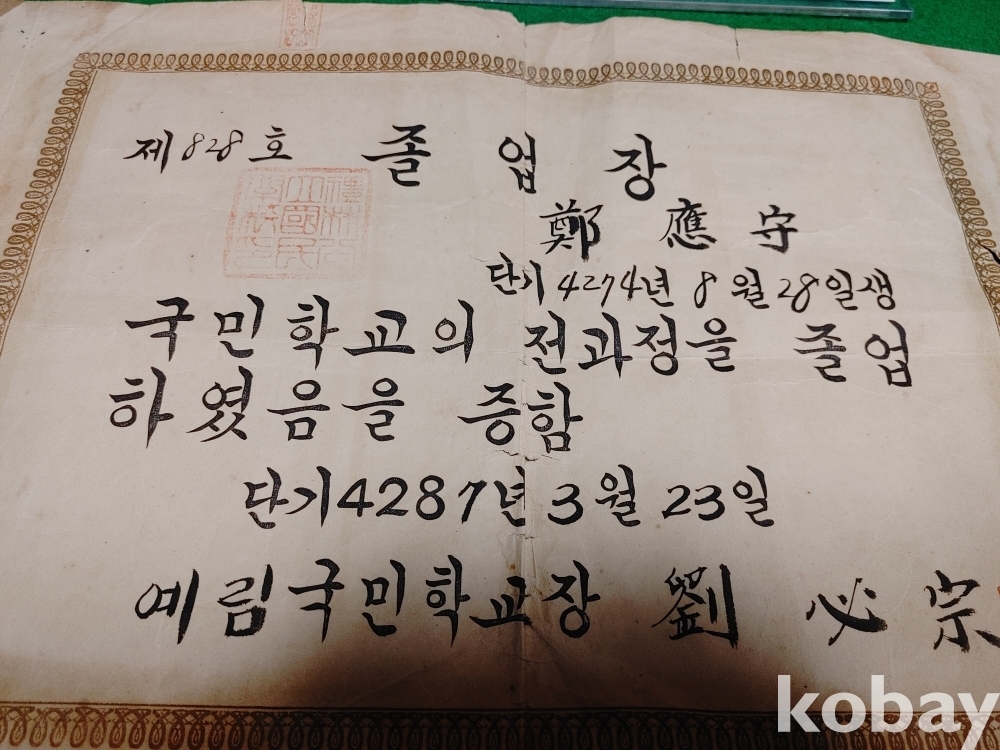 제 828 호 졸 업 장
鄭 應 守
단기 4274년 8 월 28일생
국민학교의 전과정을 졸업
하였음을 증함
단기 4287년 3월 23일
예림국민학교장 劉 必 宗
kobay